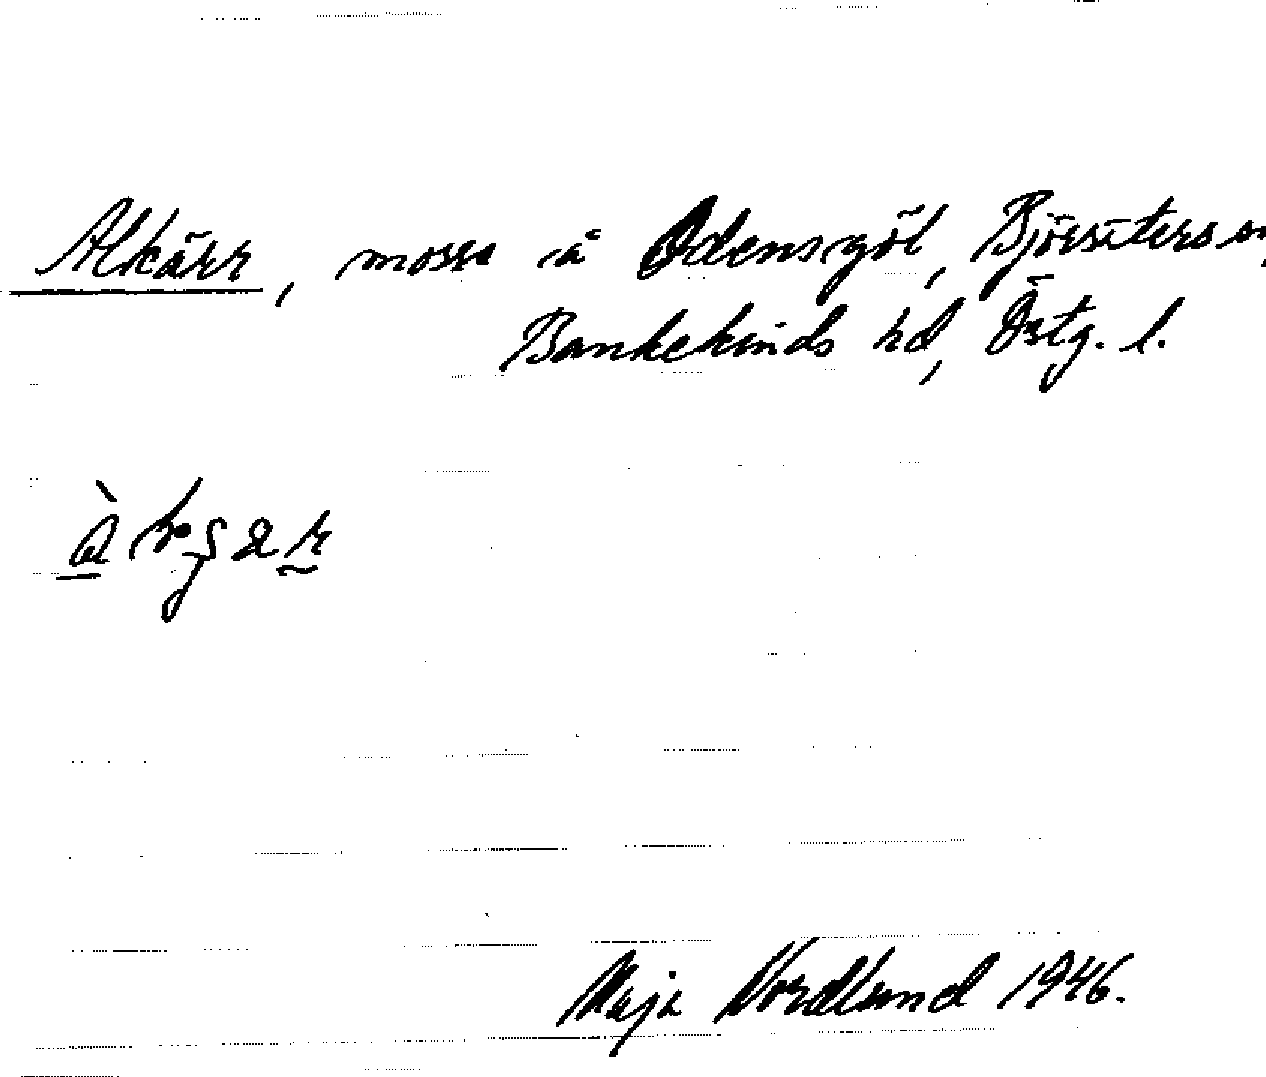 Alkärr, mosse å Odensgöl, Björsäters sn,
Bankekinds hd, Östg. l.
Maja Nordlund 1946.